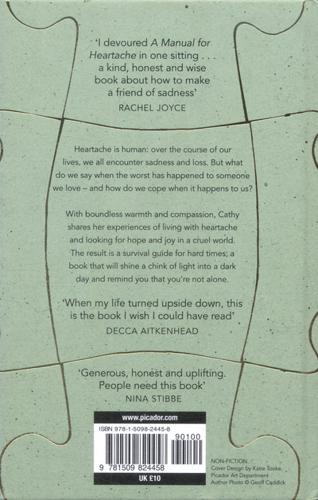 ‘I devoured A Manual for
Heartache in one sitting . . .
a kind, honest and wise
book about how to make
a friend of sadness’
RACHEL JOYCE
Heartache is human: over the course of our
lives, we all encounter sadness and loss. But what
do we say when the worst has happened to someone
we love – and how do we cope when it happens to us?
With boundless warmth and compassion, Cathy
shares her experiences of living with heartache
and looking for hope and joy in a cruel world.
The result is a survival guide for hard times; a
book that will shine a chink of light into a dark
day and remind you that you’re not alone.
‘When my life turned upside down, this
is the book I wish I could have read’
DECCA AITKENHEAD
‘Generous, honest and uplifting.
People need this book’
NINA STIBBE
www.picador.com
ISBN 978-1-5098-2445-8
90100
9 781509 824458
UK £10
NON-FICTION
Cover Design by Katie Tooke,
Picador Art Department
Author Photo © Geoff Caddick